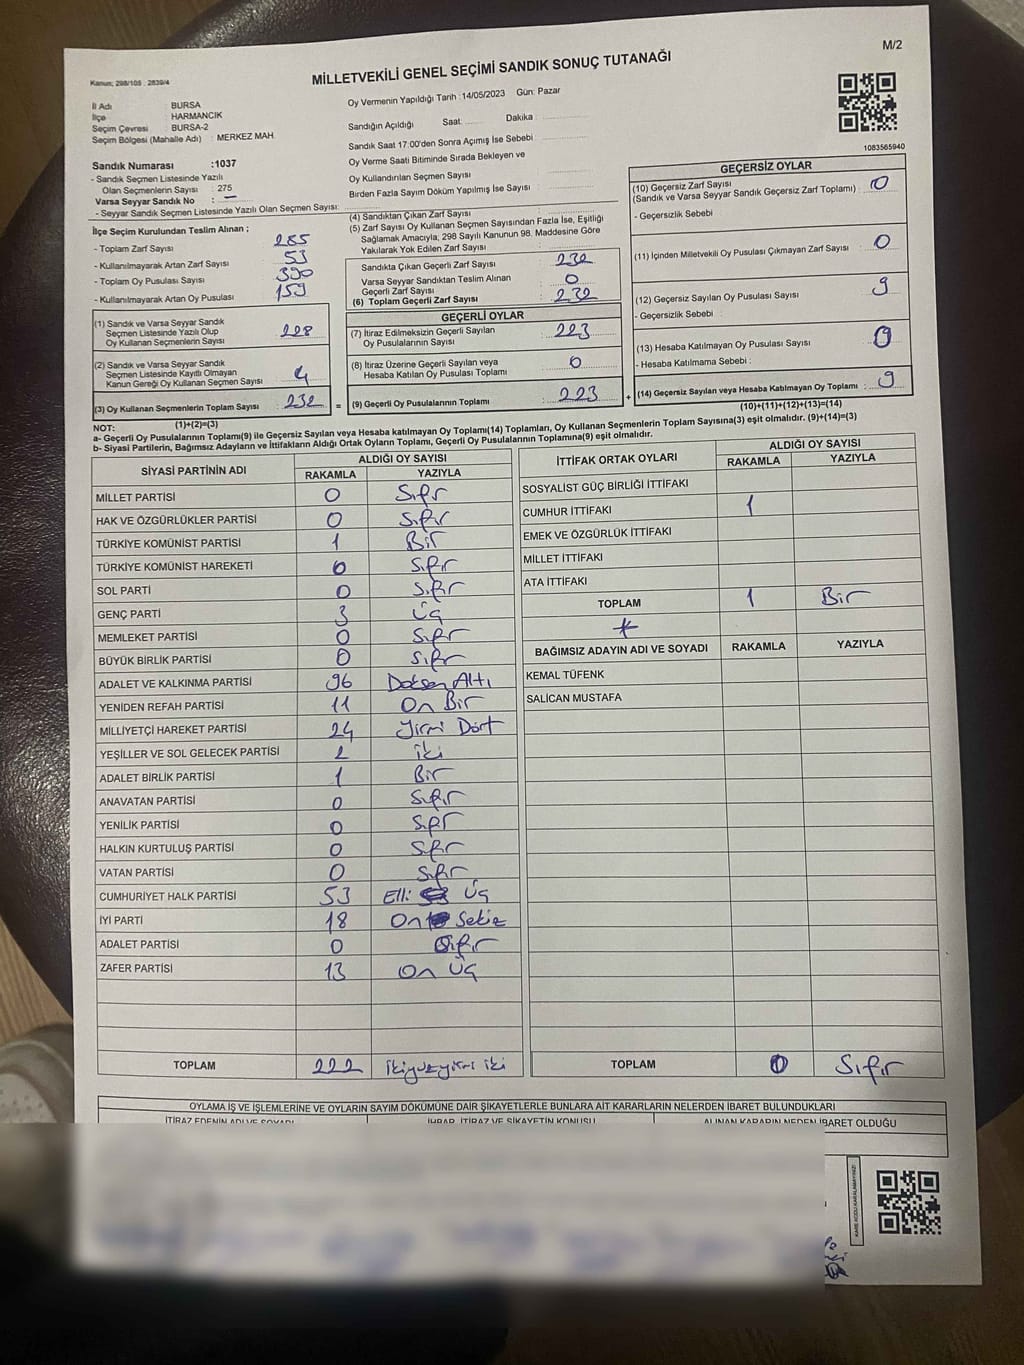 M/2
Kanun; 298/105 : 2839/4
MİLLETVEKİLİ GENEL SEÇİMİ SANDIK SONUÇ TUTANAĞI
İl Adı BURSA
İlçe HARMANCIK
Seçim Çevresi BURSA-2
Seçim Bölgesi (Mahalle Adı) : MERKEZ MAH.
Sandık Numarası :1037
- Sandık Seçmen Listesinde Yazılı
Olan Seçmenlerin Sayısı : 275
Varsa Seyyar Sandık No : —
- Seyyar Sandık Seçmen Listesinde Yazılı Olan Seçmen Sayısı:
Oy Vermenin Yapıldığı Tarih :14/05/2023 Gün: Pazar
Sandığın Açıldığı Saat: Dakika :
Sandık Saat 17:00'den Sonra Açımış İse Sebebi :
Oy Verme Saati Bitiminde Sırada Bekleyen ve
Oy Kullandırılan Seçmen Sayısı :
Birden Fazla Sayım Döküm Yapılmış İse Sayısı :
1083565940
İlçe Seçim Kurulundan Teslim Alınan ;
- Toplam Zarf Sayısı : 285
- Kullanılmayarak Artan Zarf Sayısı : 53
- Toplam Oy Pusulası Sayısı : 390
- Kullanılmayarak Artan Oy Pusulası : 159
(1) Sandık ve Varsa Seyyar Sandık
Seçmen Listesinde Yazılı Olup
Oy Kullanan Seçmenlerin Sayısı : 228
(2) Sandık ve Varsa Seyyar Sandık
Seçmen Listesinde Kayıtlı Olmayan
Kanun Gereği Oy Kullanan Seçmen Sayısı : 4
(3) Oy Kullanan Seçmenlerin Toplam Sayısı : 232
(1)+(2)=(3)
(4) Sandıktan Çıkan Zarf Sayısı :
(5) Zarf Sayısı Oy Kullanan Seçmen Sayısından Fazla İse, Eşitliği
Sağlamak Amacıyla, 298 Sayılı Kanunun 98. Maddesine Göre
Yakılarak Yok Edilen Zarf Sayısı :
Sandıkta Çıkan Geçerli Zarf Sayısı : 232
Varsa Seyyar Sandıktan Teslim Alınan
Geçerli Zarf Sayısı : 0
(6) Toplam Geçerli Zarf Sayısı : 232
GEÇERLİ OYLAR
(7) İtiraz Edilmeksizin Geçerli Sayılan
Oy Pusulalarının Sayısı : 223
(8) İtiraz Üzerine Geçerli Sayılan veya
Hesaba Katılan Oy Pusulası Toplamı : 0
= (9) Geçerli Oy Pusulalarının Toplamı : 223 +
GEÇERSİZ OYLAR
(10) Geçersiz Zarf Sayısı
(Sandık ve Varsa Seyyar Sandık Geçersiz Zarf Toplamı) : 0
- Geçersizlik Sebebi
(11) İçinden Milletvekili Oy Pusulası Çıkmayan Zarf Sayısı : 0
(12) Geçersiz Sayılan Oy Pusulası Sayısı : 9
- Geçersizlik Sebebi :
(13) Hesaba Katılmayan Oy Pusulası Sayısı : 0
- Hesaba Katılmama Sebebi :
(14) Geçersiz Sayılan veya Hesaba Katılmayan Oy Toplamı : 9
(10)+(11)+(12)+(13)=(14)
NOT:
a- Geçerli Oy Pusulalarının Toplamı(9) ile Geçersiz Sayılan veya Hesaba katılmayan Oy Toplamı(14) Toplamları, Oy Kullanan Seçmenlerin Toplam Sayısına(3) eşit olmalıdır. (9)+(14)=(3)
b- Siyasi Partilerin, Bağımsız Adayların ve İttifakların Aldığı Ortak Oyların Toplamı, Geçerli Oy Pusulalarının Toplamına(9) eşit olmalıdır.
SİYASİ PARTİNİN ADI ALDIĞI OY SAYISI
RAKAMLA YAZIYLA
MİLLET PARTİSİ 0 Sıfır
HAK VE ÖZGÜRLÜKLER PARTİSİ 0 Sıfır
TÜRKİYE KOMÜNİST PARTİSİ 1 Bir
TÜRKİYE KOMÜNİST HAREKETİ 0 Sıfır
SOL PARTİ 0 Sıfır
GENÇ PARTİ 3 Üç
MEMLEKET PARTİSİ 0 Sıfır
BÜYÜK BİRLİK PARTİSİ 0 Sıfır
ADALET VE KALKINMA PARTİSİ 96 Doksan Altı
YENİDEN REFAH PARTİSİ 11 On Bir
MİLLİYETÇİ HAREKET PARTİSİ 24 Yirmi Dört
YEŞİLLER VE SOL GELECEK PARTİSİ 2 iki
ADALET BİRLİK PARTİSİ 1 Bir
ANAVATAN PARTİSİ 0 Sıfır
YENİLİK PARTİSİ 0 Sıfır
HALKIN KURTULUŞ PARTİSİ 0 Sıfır
VATAN PARTİSİ 0 Sıfır
CUMHURİYET HALK PARTİSİ 53 Elli Üç
İYİ PARTİ 18 On Sekiz
ADALET PARTİSİ 0 Sıfır
ZAFER PARTİSİ 13 On Üç
TOPLAM 222 ikiyüzyirmi iki
İTTİFAK ORTAK OYLARI ALDIĞI OY SAYISI
RAKAMLA YAZIYLA
SOSYALİST GÜÇ BİRLİĞİ İTTİFAKI
CUMHUR İTTİFAKI 1
EMEK VE ÖZGÜRLÜK İTTİFAKI
MİLLET İTTİFAKI
ATA İTTİFAKI
TOPLAM 1 Bir
BAĞIMSIZ ADAYIN ADI VE SOYADI RAKAMLA YAZIYLA
KEMAL TÜFENK
SALİCAN MUSTAFA
TOPLAM 0 Sıfır
OYLAMA İŞ VE İŞLEMLERİNE VE OYLARIN SAYIM DÖKÜMÜNE DAİR ŞİKAYETLERLE BUNLARA AİT KARARLARIN NELERDEN İBARET BULUNDUKLARI
İTİRAZ EDENİN ADI VE SOYADI İHBAR, İTİRAZ VE ŞİKAYETİN KONUSU ALINAN KARARIN NEDEN İBARET OLDUĞU
KARE KODU KARALAMAYINIZ!